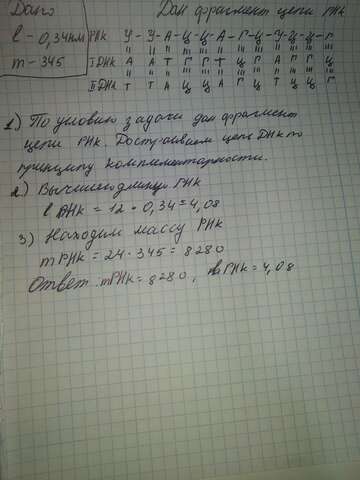 Дано
Дан фрагмент цепи РНК
l - 0,34нм
m - 345
РНК У - У - А - Ц - Ц - А - Г - Ц - У - Ц - Ц - Г
I ДНК А А Т Г Г Т Ц Г А Г Г Ц
II ДНК Т Т А Ц Ц А Г Ц Т Ц Ц Г
1) По условию задачи дан фрагмент
цепи РНК. Достраиваем цепь ДНК по
принципу комплементарности.
2) длину РНК
l ДНК = 12 · 0,34 = 4,08
3) Находим массу РНК
m РНК = 24 · 345 = 8280
Ответ: mРНК = 8280, РНК = 4,08